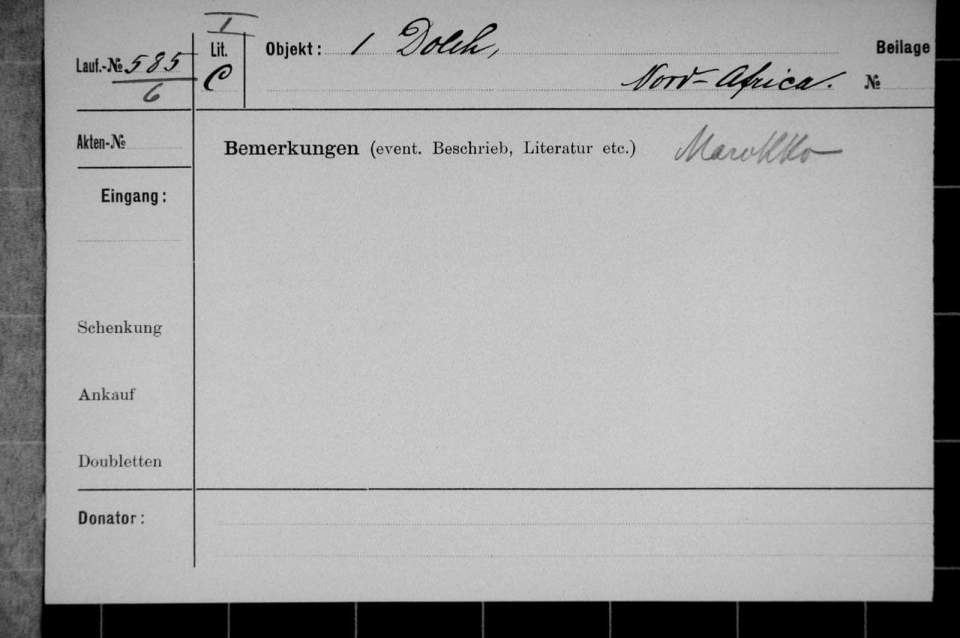 I
Lauf.-№ 585
6
Lit. C
Objekt: 1 Dolch,
Nord-Africa.
Beilage
№
Akten-№
Bemerkungen (event. Beschrieb, Literatur etc.) Marokko
Eingang:
Schenkung
Ankauf
Doubletten
Donator: